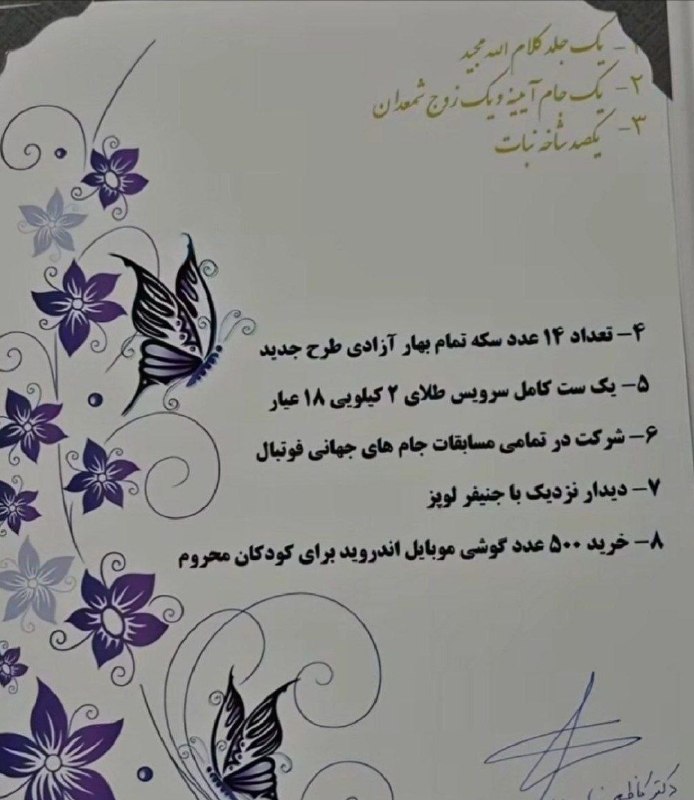 ۱- یک جلد کلام الله مجید
۲- یک جام آیینه و یک زوج شمعدان
۳- یکصد شاخه نبات
۴- تعداد ۱۴ عدد سکه تمام بهار آزادی طرح جدید
۵- یک ست کامل سرویس طلای ۲ کیلویی ۱۸ عیار
۶- شرکت در تمامی مسابقات جام های جهانی فوتبال
۷- دیدار نزدیک با جنیفر لوپز
۸- خرید ۵۰۰ عدد گوشی موبایل اندروید برای کودکان محروم
دکتر